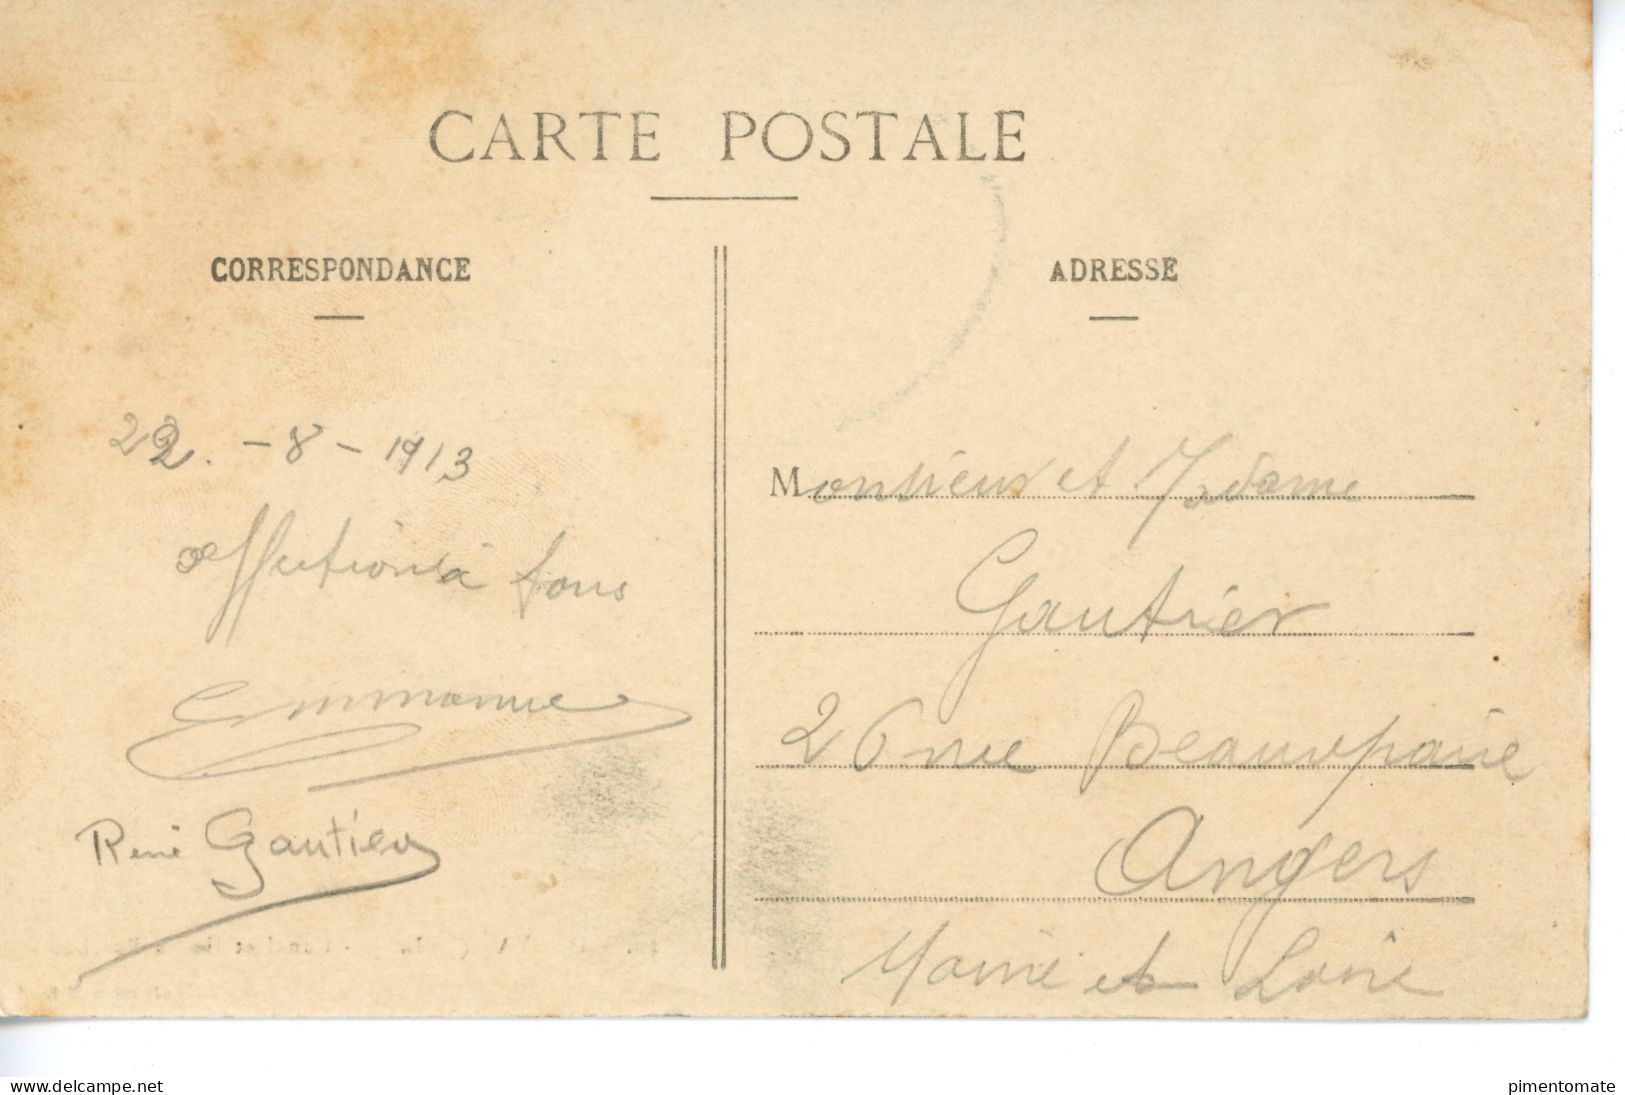 CARTE POSTALE
CORRESPONDANCE
22. - 8 - 1913
affections à tous
Emmanuel
René Gautier
ADRESSE
Monsieur et Madame
Gautier
26 rue Beaurepaire
Angers
Maine et Loire
www.delcampe.net
pimentomate